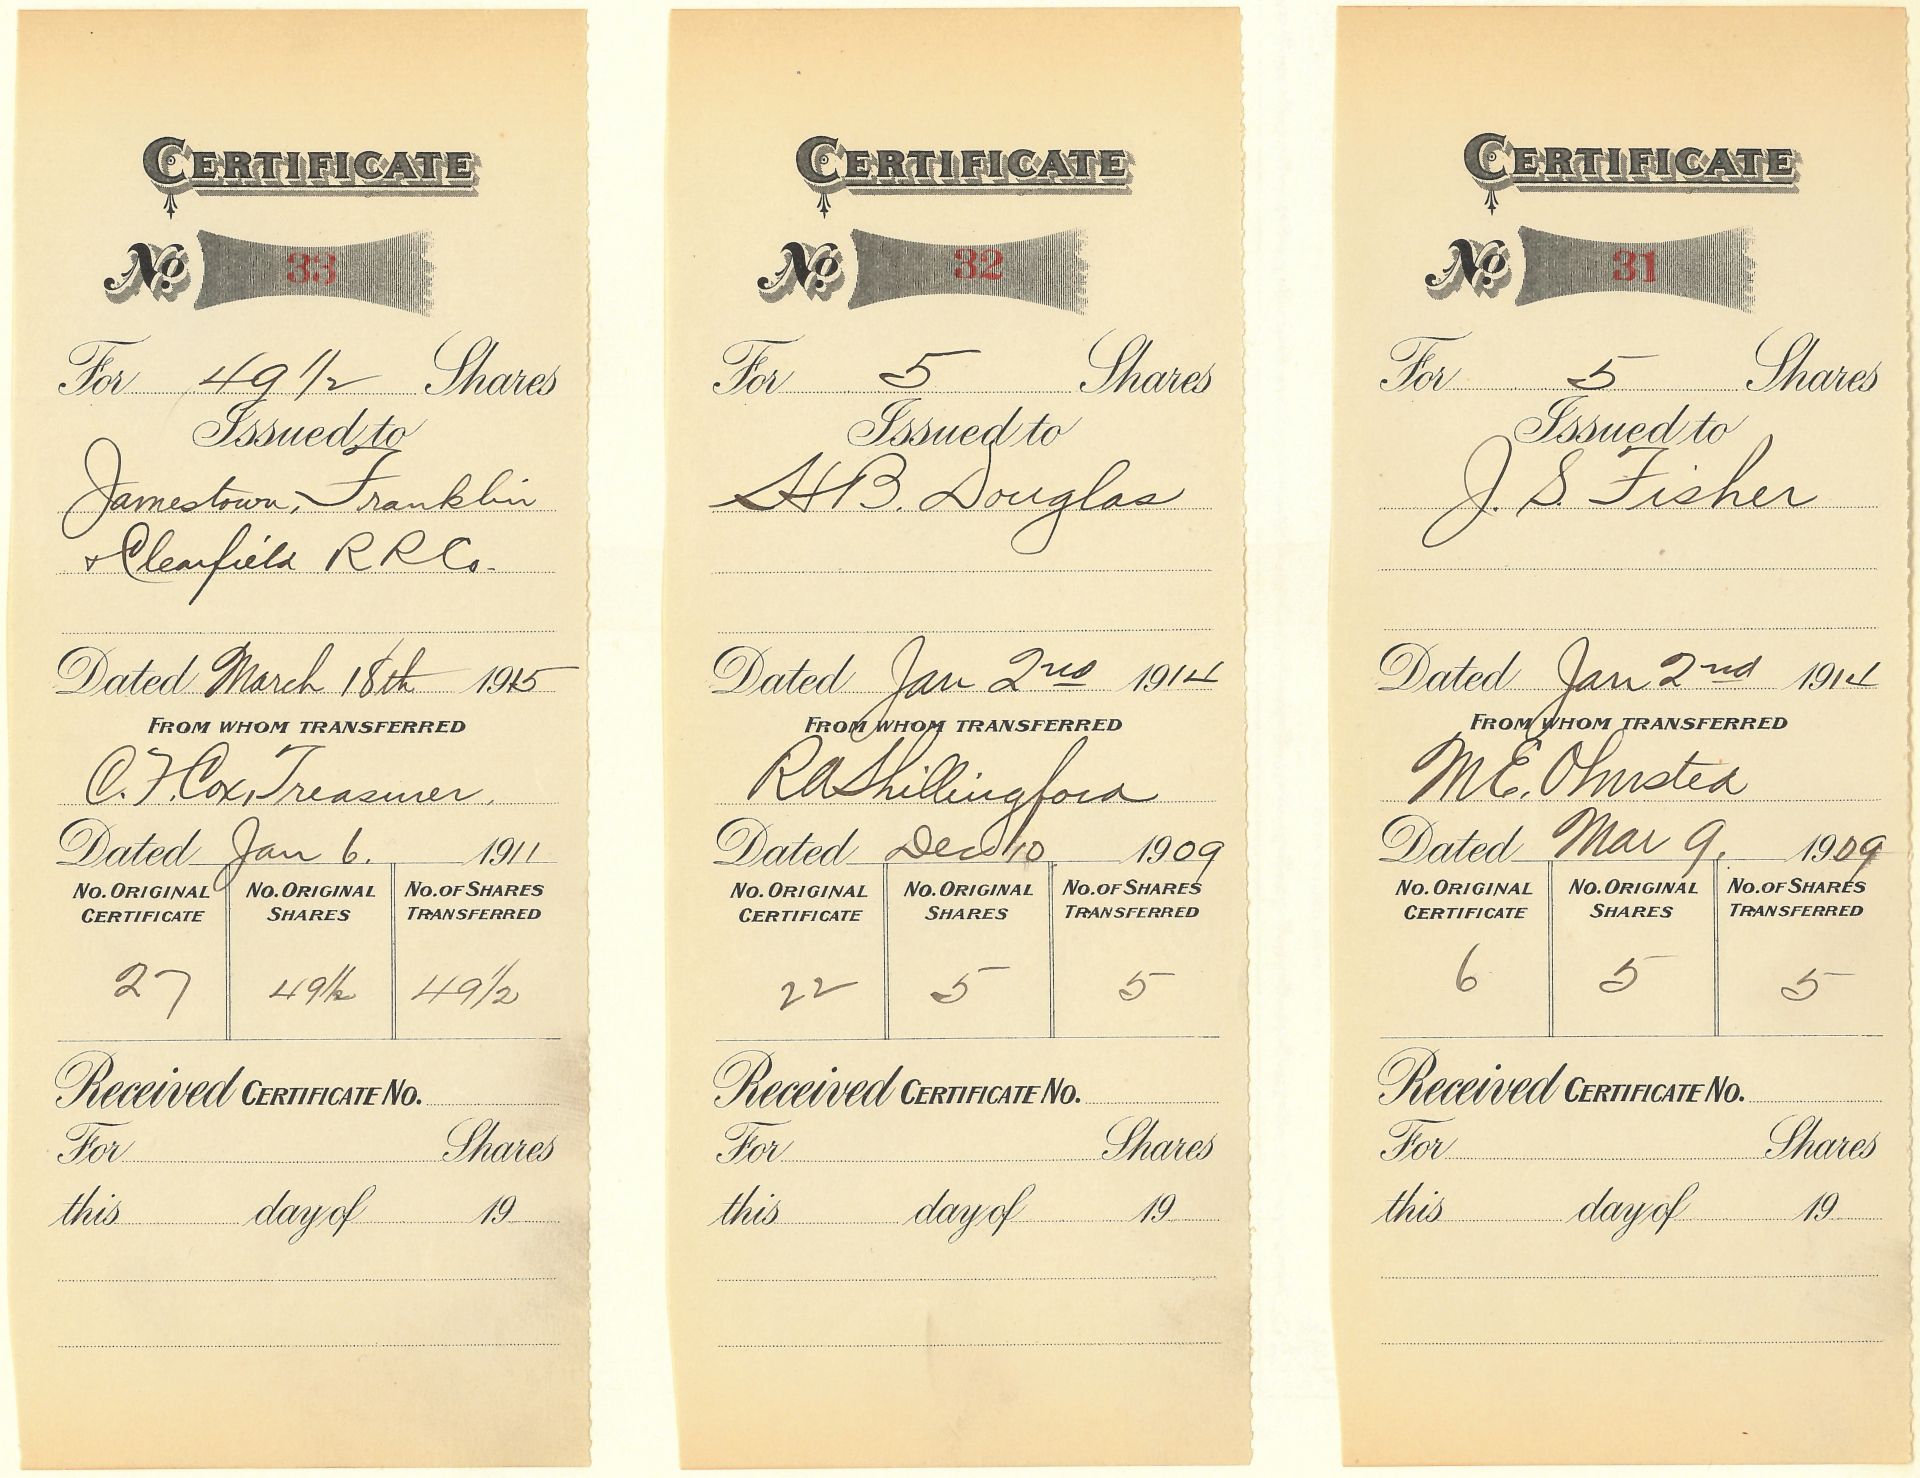 CERTIFICATE
No. 33
For 49 1/2 Shares
Issued to
Jamestown, Franklin
& Clearfield R R Co.
Dated March 18th 1915
FROM WHOM TRANSFERRED
C. F. Cox, Treasurer.
Dated Jan 6. 1911
NO. ORIGINAL CERTIFICATE NO. ORIGINAL SHARES NO. OF SHARES TRANSFERRED
27 49 1/2 49 1/2
Received CERTIFICATE NO.
For Shares
this day of 19
CERTIFICATE
No. 32
For 5 Shares
Issued to
H B. Douglas
Dated Jan 2nd 1914
FROM WHOM TRANSFERRED
R A Shillingford
Dated Dec 10 1909
NO. ORIGINAL CERTIFICATE NO. ORIGINAL SHARES NO. OF SHARES TRANSFERRED
22 5 5
Received CERTIFICATE NO.
For Shares
this day of 19
CERTIFICATE
No. 31
For 5 Shares
Issued to
J. S. Fisher
Dated Jan 2nd 1914
FROM WHOM TRANSFERRED
M. E. Olmsted
Dated Mar 9. 1909
NO. ORIGINAL CERTIFICATE NO. ORIGINAL SHARES NO. OF SHARES TRANSFERRED
6 5 5
Received CERTIFICATE NO.
For Shares
this day of 19